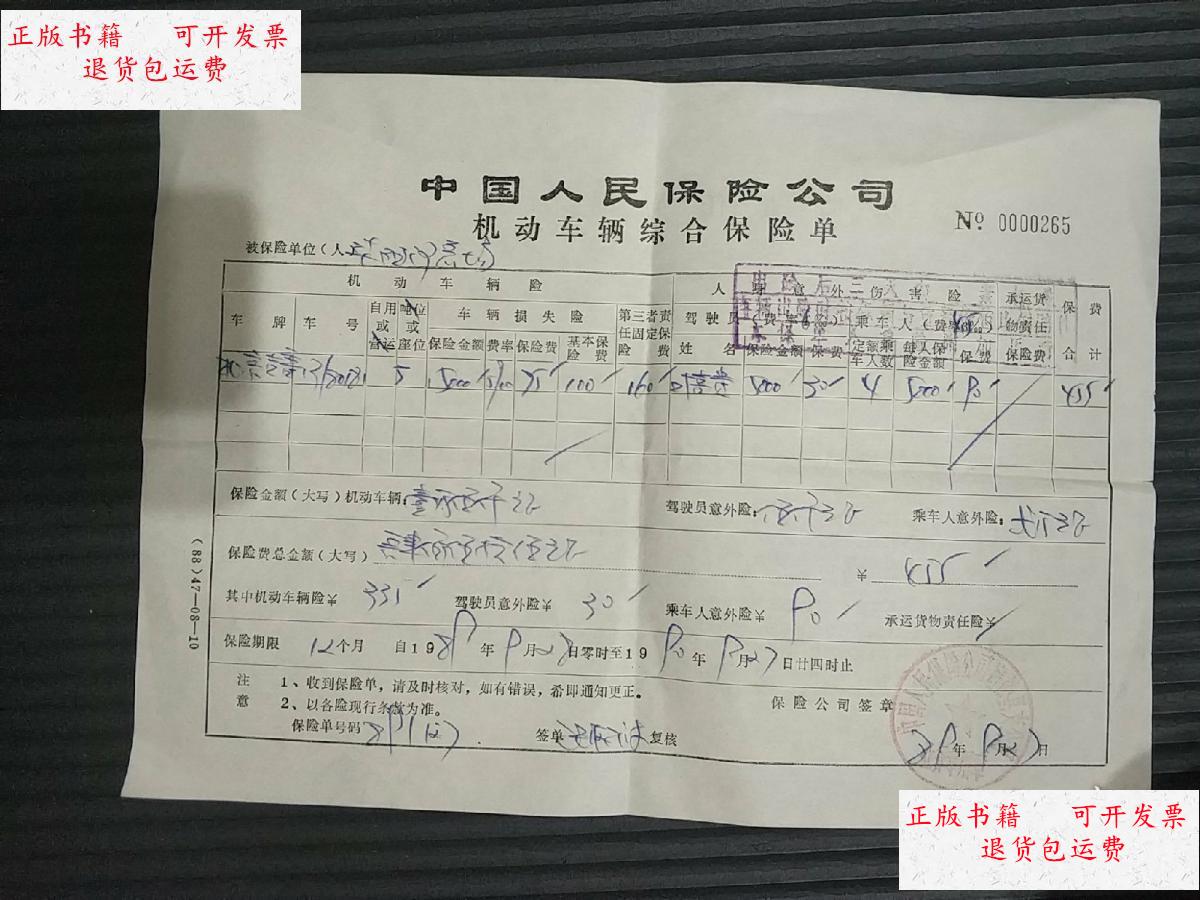 正版书籍 可开发票
退货包运费
中国人民保险公司
机动车辆综合保险单
№ 0000265
被保险单位(人
机动车辆险 人身意外伤害险 承运货物责任保险费 保费合计
车牌 车号 自用或营运 吨位或座位 车辆损失险 第三者责任固定保险费 驾驶员 (费率‰) 乘车人(费率‰)
保险金额 费率 保险费 基本保险费 姓名 保险金额 保费 定额乘车人数 每人保险金额 保费
5 5000 75 100 160 5000 30 4 5000 90 455
保险金额(大写)机动车辆: 驾驶员意外险: 乘车人意外险:
保险费总金额(大写) ¥ 455
其中机动车辆险¥ 335 驾驶员意外险¥ 30 乘车人意外险¥ 90 承运货物责任险¥
保险期限 12个月 自1989年9月28日零时至1990年9月27日廿四时止
注意 1、收到保险单,请及时核对,如有错误,希即通知更正。
2、以各险现行条款为准。
保险公司签章
保险单号码 签单 复核 89年9月27日
(88)47—08—10
正版书籍 可开发票
退货包运费